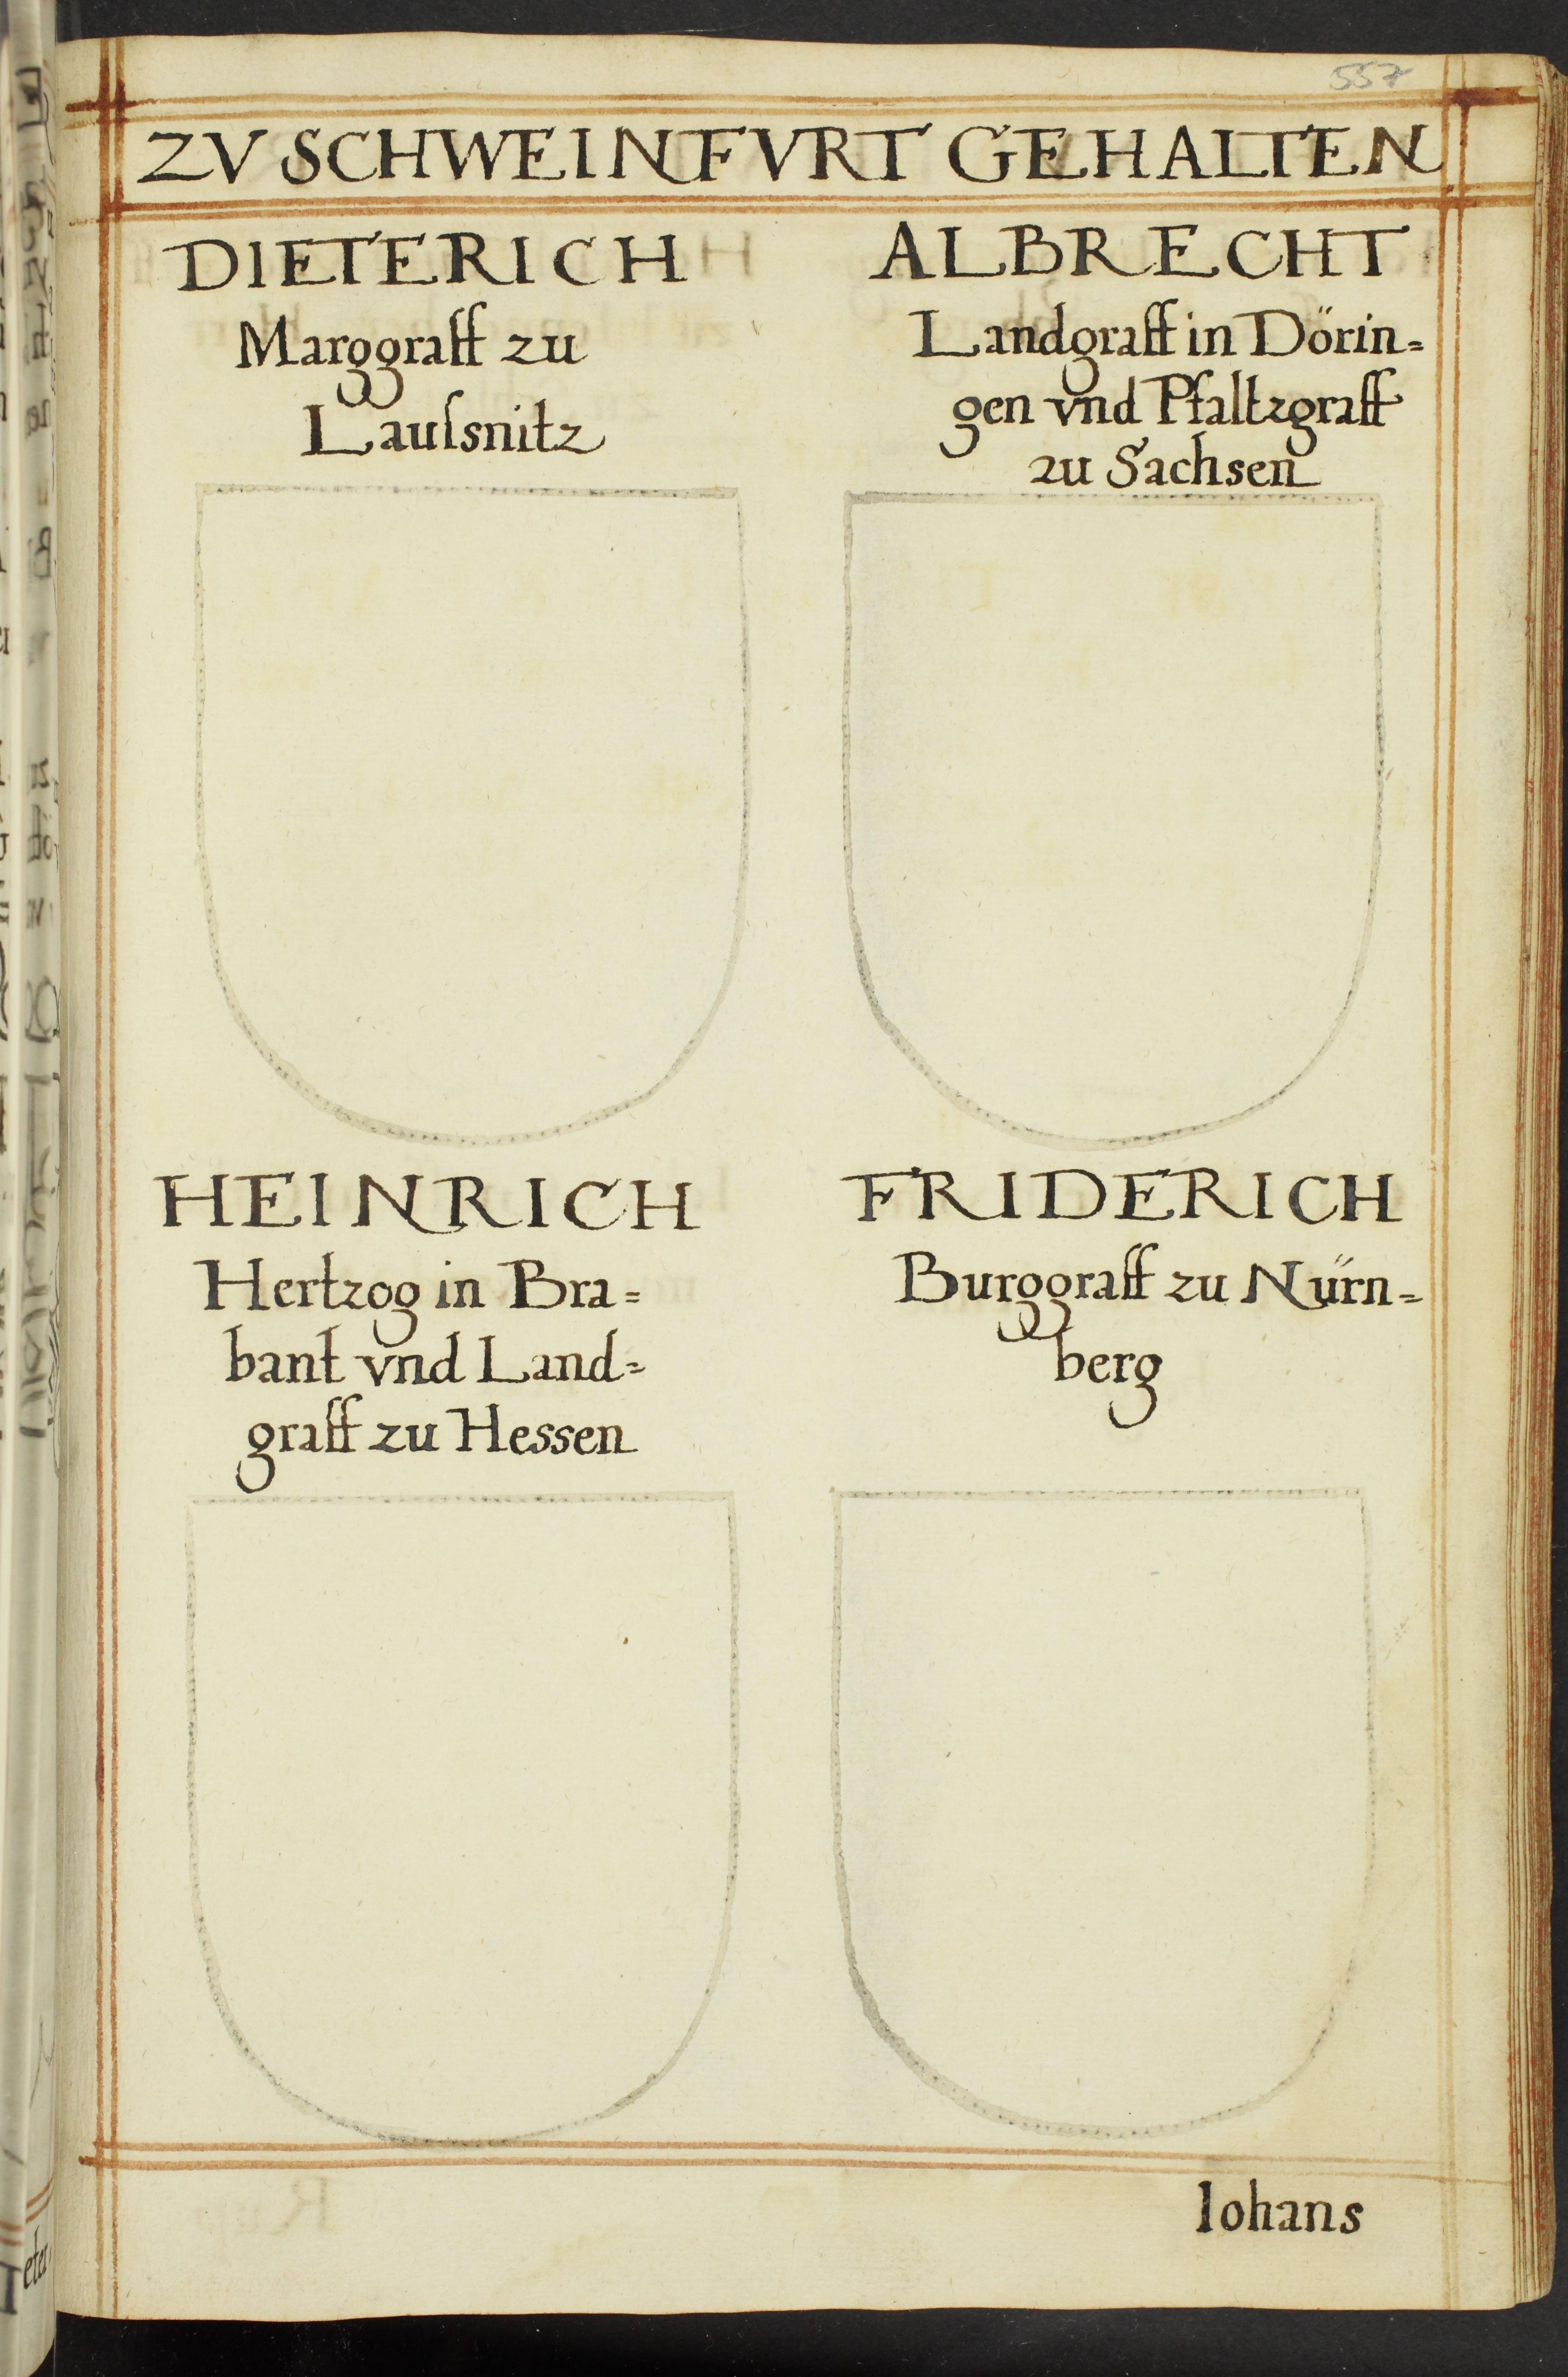 557
ZV SCHWEINFVRT GEHALTEN
DIETERICH
Marggraff zu
Lauſsnitz
ALBRECHT
Landgraff in Dörin=
gen vnd Pfaltzgraff
zu Sachsen
HEINRICH
Hertzog in Bra=
bant vnd Land=
graff zu Hessen
FRIDERICH
Burggraff zu Nürn=
berg
Iohans